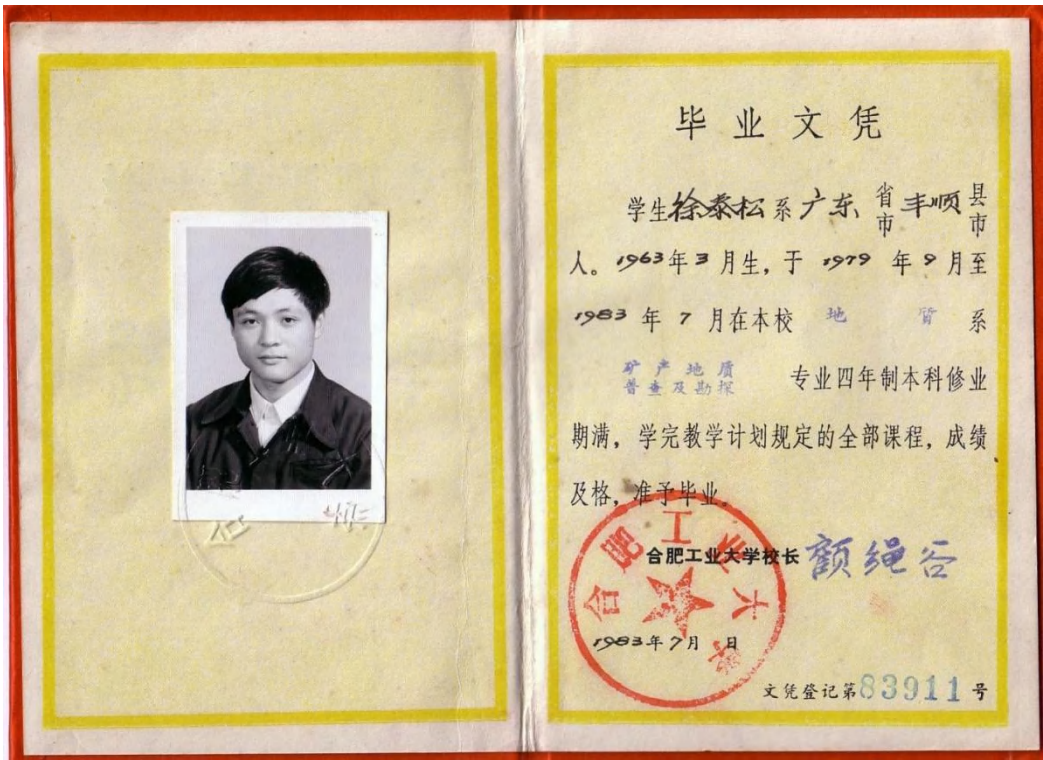 毕业文凭
学生徐泰松系广东省市丰顺县市
人。1963年3月生，于1979年9月至
1983年7月在本校地质系
矿产地质普查及勘探专业四年制本科修业
期满，学完教学计划规定的全部课程，成绩
及格，准予毕业。
合肥工业大学校长 颜绳谷
合肥工业大学
1983年7月 日
文凭登记第83911号